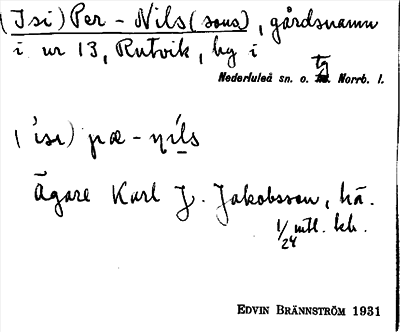 (Isi) Per-Nils(sons), gårdsnamn
i nr 13, Rutvik, by i
Nederluleå sn. o. tg Norrb. l.
('isi) pæ-níls
Ägare Karl J. Jakobsson, hä.
1/24 mtl. kh.
EDVIN BRÄNNSTRÖM 1931